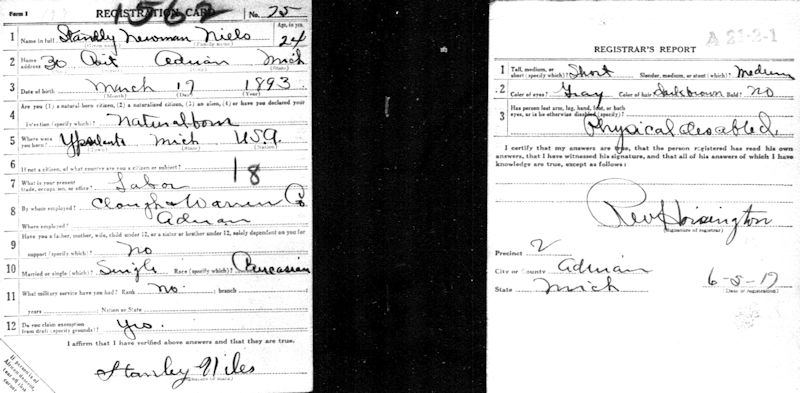 Form 1
REGISTRATION CARD No. 75
1562
Age, in yrs.
1 Name in full Stanley Newman Niels 24
(Given name) (Family name)
2 Home address 30 Adrian Mich
(State)
3 Date of birth March 17 1893
(Month) (Day) (Year)
Are you (1) a natural-born citizen, (2) a naturalized citizen, (3) an alien, (4) or have you declared your
4 intention (specify which)? Natural born
5 Where were you born? Ypsilanti Mich U.S.A.
(Nation)
6 If not a citizen, of what country are you a citizen or subject?
18
7 What is your present trade, occupation, or office? Labor
8 By whom employed? Clough & Warren Co
Where employed? Adrian
9 Have you a father, mother, wife, child under 12, or a sister or brother under 12, solely dependent on you for
support (specify which)? No
10 Married or single (which)? Single Race (specify which)? Caucasian
11 What military service have you had? Rank no branch
years Nation or State
12 Do you claim exemption from draft (specify grounds)? Yes.
I affirm that I have verified above answers and that they are true.
Stanley Niles
If person is of African descent, tear off this corner
REGISTRAR'S REPORT
A 21-2-1
1 Tall, medium, or short (specify which)? Short Slender, medium, or stout (which)? Medium
2 Color of eyes? Gray Color of hair? Dark brown Bald? No
3 Has person lost arm, leg, hand, foot, or both eyes, or is he otherwise disabled (specify)?
Physical disabled.
I certify that my answers are true, that the person registered has read his own
answers, that I have witnessed his signature, and that all of his answers of which I have
knowledge are true, except as follows:
Hoisington
(Signature of registrar)
Precinct 2
City or County Adrian
State Mich
6-5-17
(Date of registration)